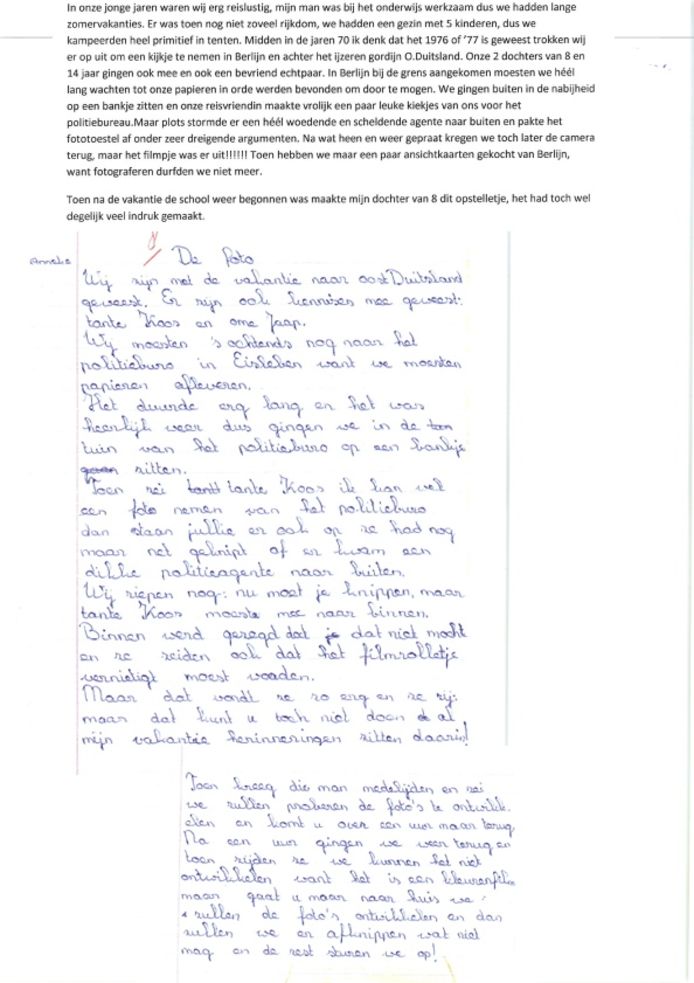 In onze jonge jaren waren wij erg reislustig, mijn man was bij het onderwijs werkzaam dus we hadden lange
zomervakanties. Er was toen nog niet zoveel rijkdom, we hadden een gezin met 5 kinderen, dus we
kampeerden heel primitief in tenten. Midden in de jaren 70 ik denk dat het 1976 of ’77 is geweest trokken wij
er op uit om een kijkje te nemen in Berlijn en achter het ijzeren gordijn O.Duitsland. Onze 2 dochters van 8 en
14 jaar gingen ook mee en ook een bevriend echtpaar. In Berlijn bij de grens aangekomen moesten we héél
lang wachten tot onze papieren in orde werden bevonden om door te mogen. We gingen buiten in de nabijheid
op een bankje zitten en onze reisvriendin maakte vrolijk een paar leuke kiekjes van ons voor het
politiebureau.Maar plots stormde er een héél woedende en scheldende agente naar buiten en pakte het
fototoestel af onder zeer dreigende argumenten. Na wat heen en weer gepraat kregen we toch later de camera
terug, maar het filmpje was er uit!!!!!! Toen hebben we maar een paar ansichtkaarten gekocht van Berlijn,
want fotograferen durfden we niet meer.
Toen na de vakantie de school weer begonnen was maakte mijn dochter van 8 dit opstelletje, het had toch wel
degelijk veel indruk gemaakt.
Anneke
De foto
Wij zijn met de vakantie naar oost Duitsland
geweest. Er zijn ook kennisen mee geweest:
tante Koos en ome Jaap.
Wij moesten 's ochtends nog naar het
politieburo in Eisleben want we moesten
papieren afleveren.
Het duurde erg lang en het was
heerlijk weer dus gingen we in de
tuin van het politieburo op een bankje
zitten.
Toen zei tante Koos ik kan wel
een foto nemen van het politieburo
dan staan jullie er ook op ze had nog
maar net geknipt of er kwam een
dikke politieagente naar buiten.
Wij riepen nog: nu moet je knippen, maar
tante Koos moeste mee naar binnen.
Binnen werd gezegd dat je dat niet mocht
en ze zeiden ook dat het filmrolletje
vernietigt moest worden.
Maar dat vondt ze zo erg en ze zij:
maar dat kunt u toch niet doen al
mijn vakantie herinneringen zitten daarin!
Toen kreeg die man medelijden en zei
we zullen proberen de foto's te ontwikk.
elen en komt u over een uur maar terug,
Na een uur gingen we weer terug en
toen zijden ze we kunnen het niet
ontwikkelen want het is een kleurenfilm
maar gaat u maar naar huis we
zullen de foto's ontwikkelen en dan
zullen we er afknippen wat niet
mag en de rest sturen we op!